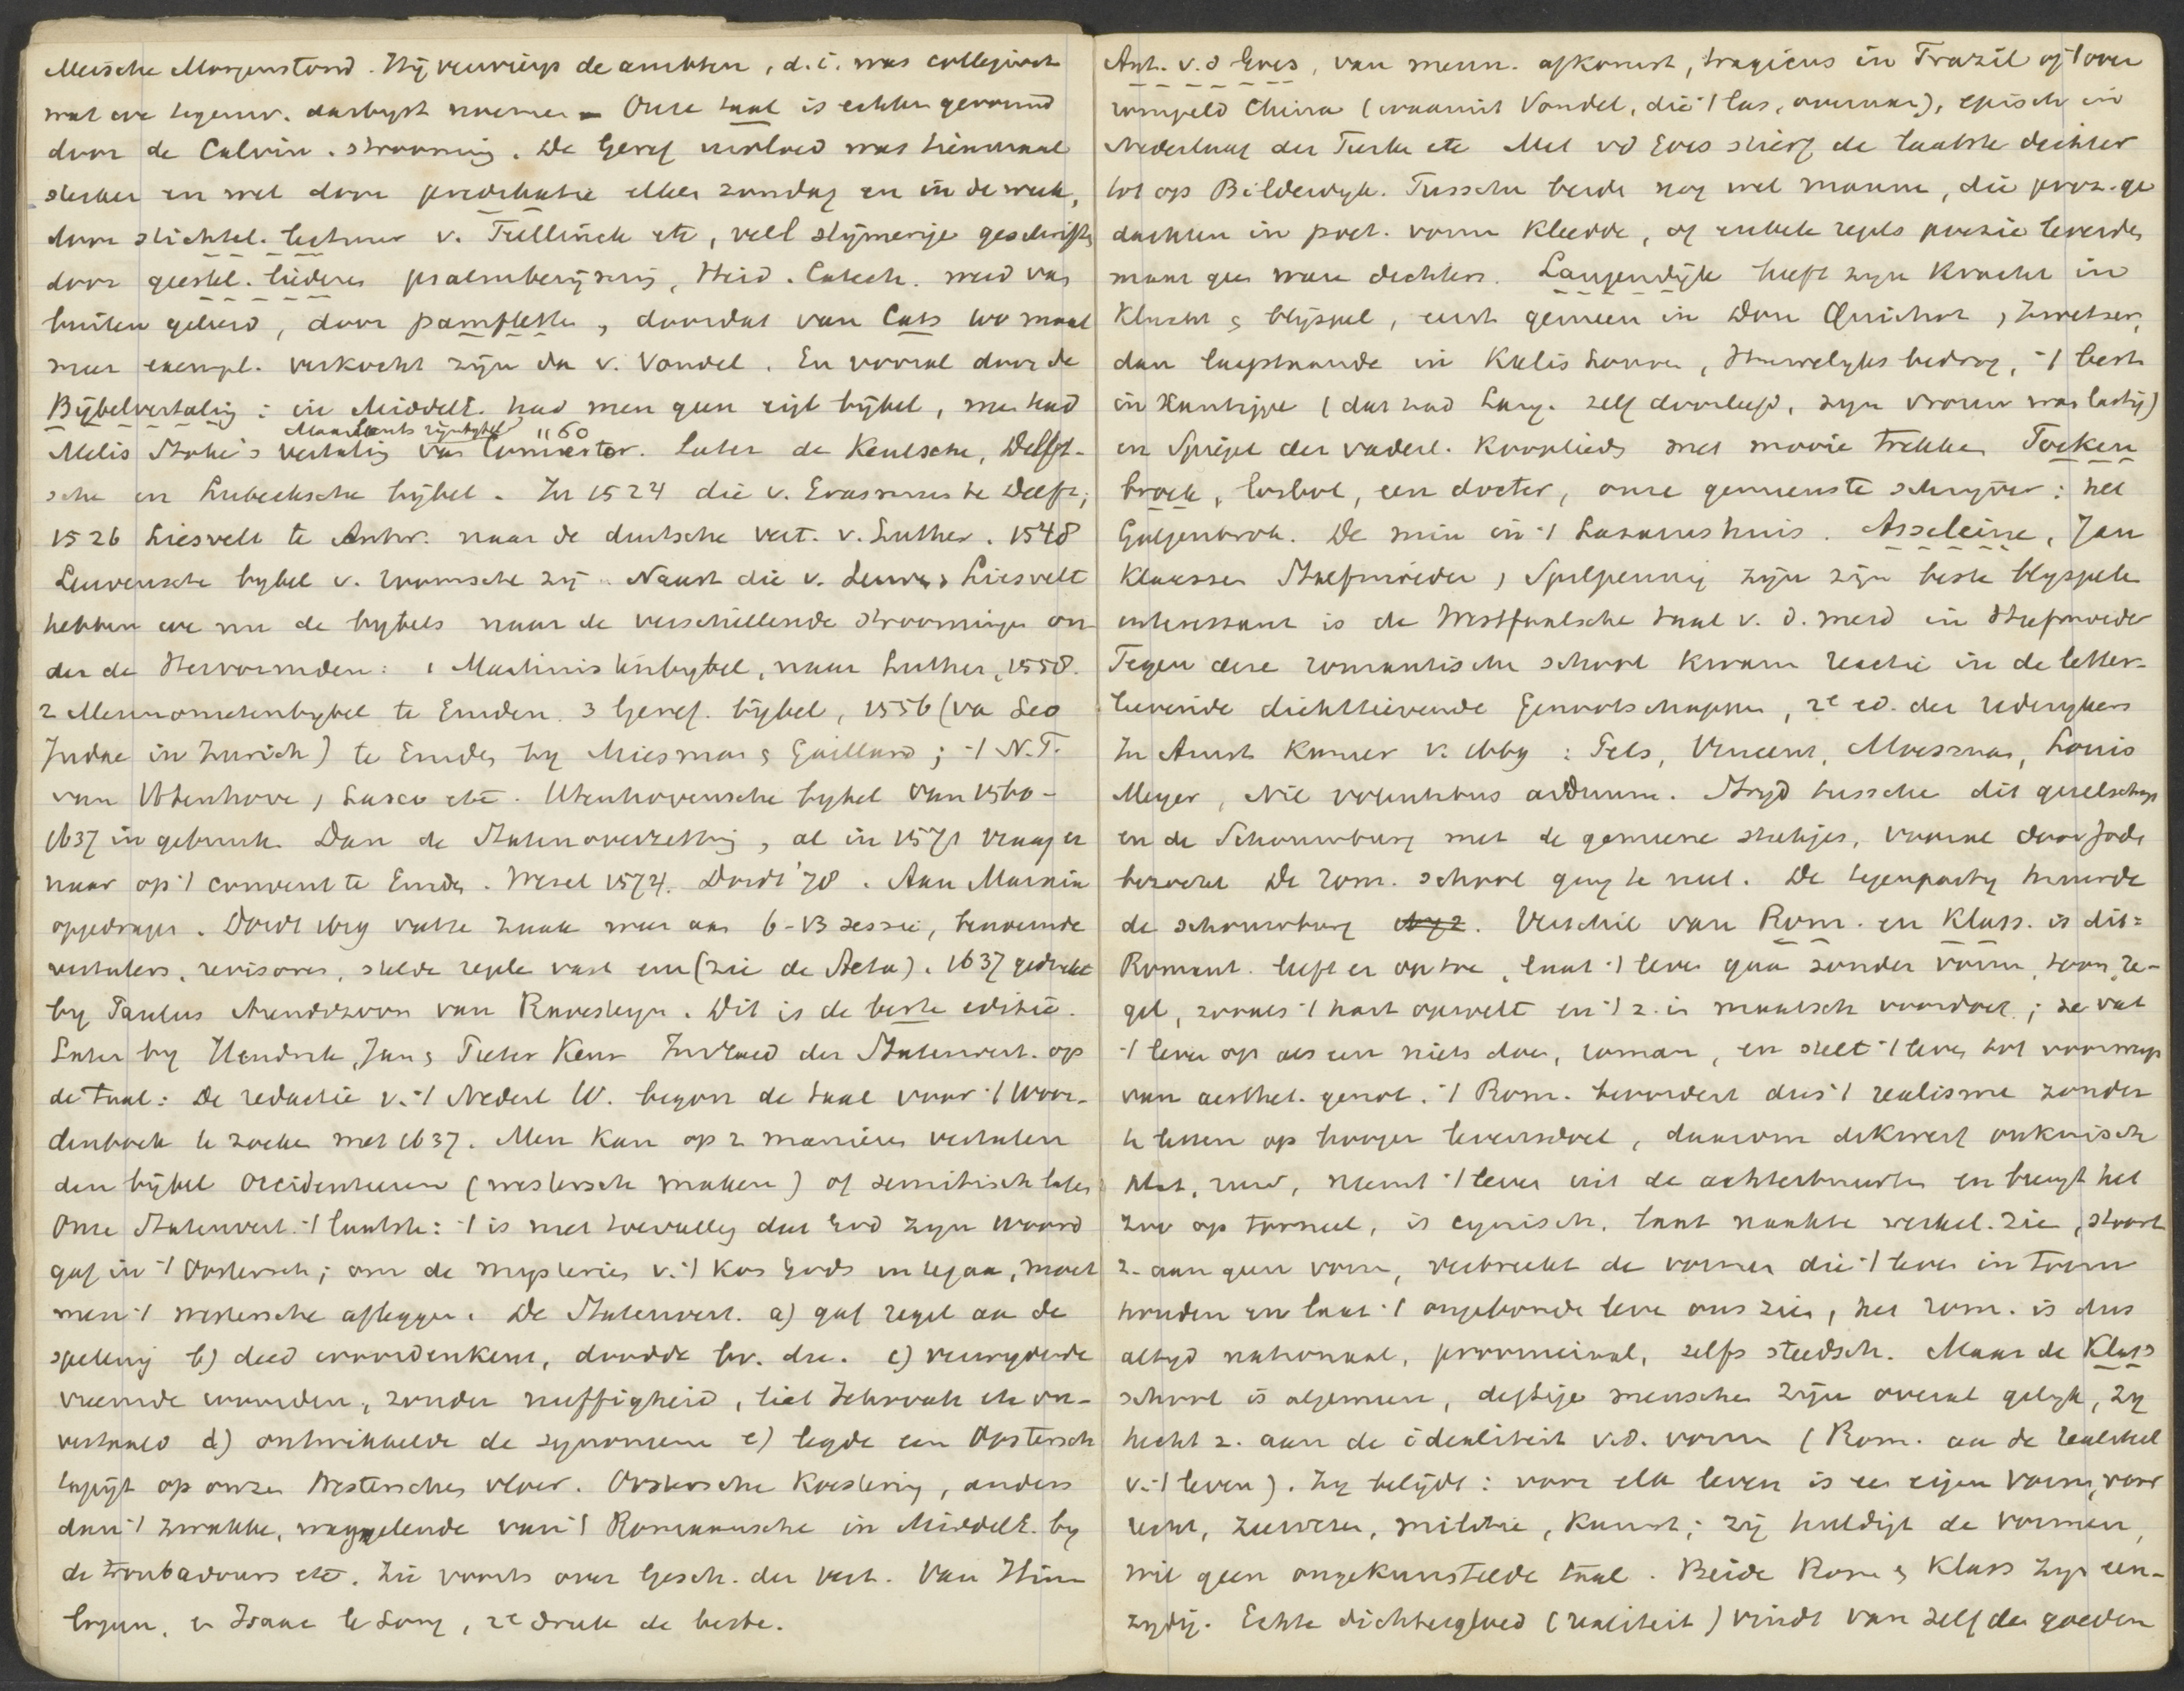 Meische Morgenstond. Hij verwierp de ambten, d.i. was collegiant
wat we tegenw. darbyst noemen - Onze taal is echter gevormd
door de Calvin. strooming. De Geref invloed was tienmaal
sterker en wel door predikatie elken zondag en in de week,
door stichtel. lectuur v. Teellinck etc, veel slijmerige geschriften
door geestel. liederen psalmberijming, Heid. Catech. werd van
buiten geleerd, door pamfletten, doordat van Cats 100 maal
meer exempl. verkocht zijn dan v. Vondel. En vooral door de
Bijbelvertaling: in Middele. had men geen eigl bijbel, men had
Maerlants rijmbijbel 1160
Melis Stoke's vertaling van Comestor. Later de Keulsche, Delft-
sche en Lubecksche bijbel. In 1524 die v. Erasmus te Delft;
1526 Liesvelt te Antw. naar de duitsche vert. v. Luther. 1548
Leuvensche bijbel v. roomsche zij. Naast die v. Leuven & Liesvelt
hebben we nu de bijbels naar de verschillende stroomingen on
der de Hervormden: 1 Martinistenbijbel, naar Luther, 1558.
2 Mennonietenbijbel te Emden. 3 Geref. bijbel, 1556 (va Leo
Judae in Zurich) te Emden by Miesman & Gaillard; 't N.T.
van Utenhove, Lasco etc. Utenhovensche bijbel van 1560-
1637 in gebruik. Dan de Statenoverzetting, al in 1571 vraag er
naar op 't convent te Emden. Wesel 1574. Dordt '78. Aan Marnix
opgedragen. Dordt 1619 vatte zaak weer aan 6-13 sessie, benoemde
vertalers, revisores, stelde regels vast enz (zie de Acta). 1637 gedrukt
by Paulus Arendszoon van Ravesteyn. Dit is de beste editie.
Later by Hendrik, Jan & Pieter Keur Invloed der Statenvert. op
de taal: De redactie v. 't Nederl W. begon de taal voor 't Woor-
denboek te zoeken met 1637. Men kan op 2 manieren vertalen
den bijbel occidenteeren (westersch maken) of semitisch laten
Onze Statenvert. 't laatste: 't is niet toevallig dat God zijn woord
gaf in 't Oostersch; om de mysteries v. 't kos Gods in te gaan, moet
men 't westersche afleggen. De Statenvert. a) gaf regel aan de
spelling b) deed woordenkeus, doodde bv. du. c) verwijderde
vreemde woorden, zonder nuffigheid, liet Jehovah etc on-
vertaald d) ontwikkelde de synoniemen e) legde een Oostersch
tapijt op onzen Westerschen vloer. Oostersche koestering, anders
dan 't zwakke, waggelende van 't Romaansche in Middele. by
de troubadours etc. Zie voorts over Gesch. der vert. Van Hin-
lopen, & Isaac le Long, 2e druk de beste.
Ant. v. d Goes, van menn. afkomst, tragicus in Trazil of 't over
rompeld China (waarmit Vondel, die 't las, overnam), episch in
Nederlaag der Turken etc Met vd Goes stierf de laatste dichter
tot op Bilderdyk. Tusschen beide nog wel mannen, die proz. ge
dachten in poet. vorm kleedde, of enkele regels poezie leverden,
maar geen ware dichters. Langendijk heeft zijn kracht in
klucht & blijspel, eerst gemeen in Don Quichot, Zwetser,
dan langstaande in Krelis Louwen, Huwelyks bedrog, 't best
in Xantippe (dat had Lang. zelf doorleefd, zijn vrouw was lastig)
en Spiegel der vaderl. kooplieden met mooie trekken Focken
broch, losbol, een dokter, onze gemeenste schryver: het
Galgenbrok. De min in 't Lazarushuis. Asseleine, Jan
Klaassen Stiefmoeder, Spilpenning zijn zijn beste blyspelen
interessant is de Westfaalsche taal v. d. meid in Stiefmoeder
Tegen deze romantische school kwam reactie in de letter-
lievende dichtlievende Genootschappen, 2e ed. der Rederykers
In Amst Kamer v. 1669: Pels, Vincent, Moesman, Louis
Meyer, Nil volentibus arduum. Stryd tusschen dit gezelschap
en de Schouwburg met de gemeene stukjes, vooral door Joden
bezocht De rom. school ging te niet. De tegenparty huurde
de schouwburg. Verschil van Rom. en Klass. is dit:
Romant. leeft er op toe, laat 't leven gaan zonder vorm, toon, re-
gel, zooals 't hart opwelt en 't z. in maatsch voordoet; ze vat
't leven op als een niets doen, roman, en stelt 't leven tot voorwerp
van aesthet. genot. 't Rom. bevordert dus 't realisme zonder
te letten op hooger levensdoel, daarom dikwerf onkuisch
plat, ruw, neemt 't leven uit de achterbuurten en brengt het
zoo op tooneel, is cynisch, laat naakte werkel. zien, stoort
z. aan geen vorm, verbreekt de vormen die 't leven in toom
houden en laat 't ongebonde leven ons zien, het rom. is dus
altyd nationaal, provinciaal, zelfs steedsch. Maar de Klass
school is algemeen, deftige menschen zijn overal gelyk, zy
hecht z. aan de idealiteit v.d. vorm (Rom. aan de realiteit
v. 't leven). Zy belijdt: voor elk leven is een eigen vorm, voor
recht, zeewezen, militie, kunst; zij huldigt de vormen,
wil geen ongekunstelde taal. Beide Rom & Klass zijn een-
zydig. Echte dichtergloed (realiteit) vindt van zelf den goeden